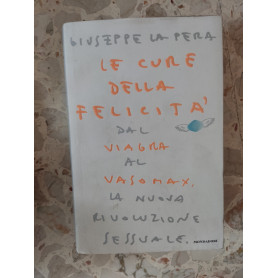 GIUSEPPE LA PERA
LE CURE
DELLA
FELICITA'
DAL
VIAGRA
AL
VASOMAX.
LA NUOVA
RIVOLUZIONE
SESSUALE.
MONDADORI